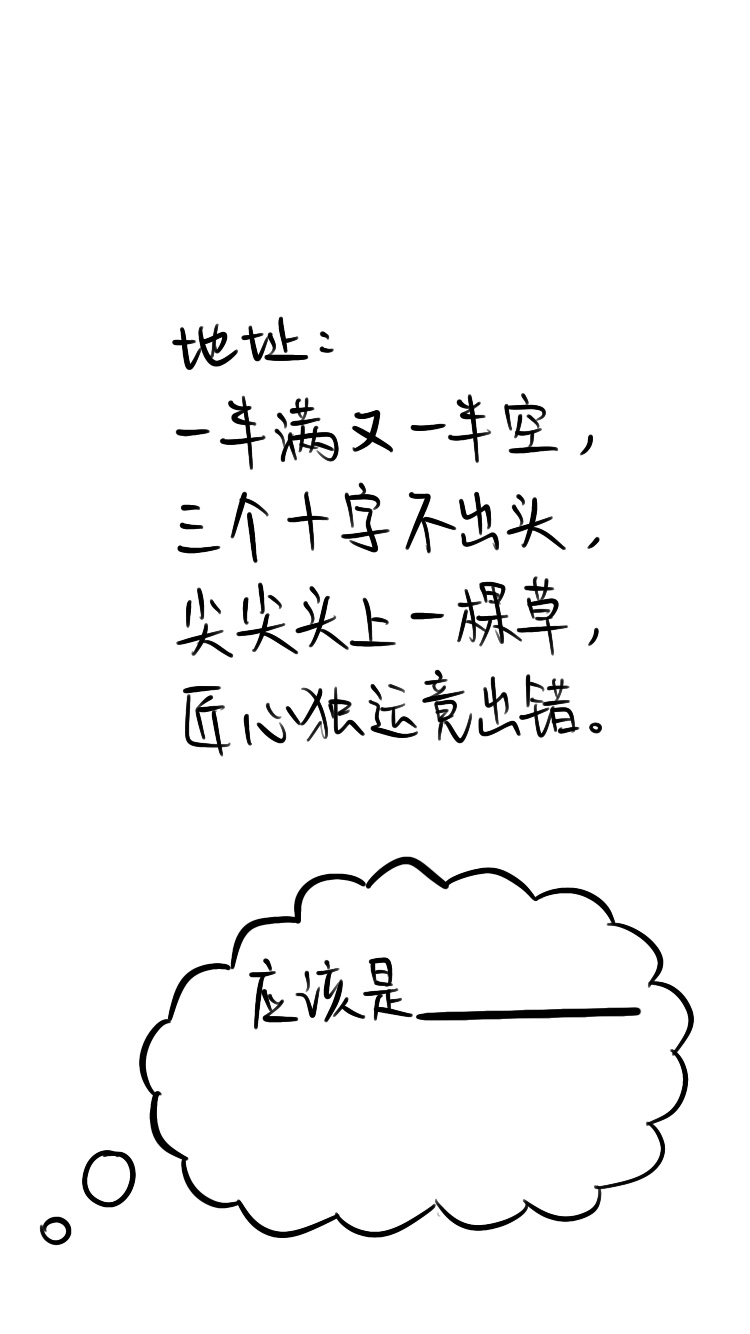 地址：
一半满又一半空，
三个十字不出头，
尖尖头上一棵草，
匠心独运竟出错。
应该是